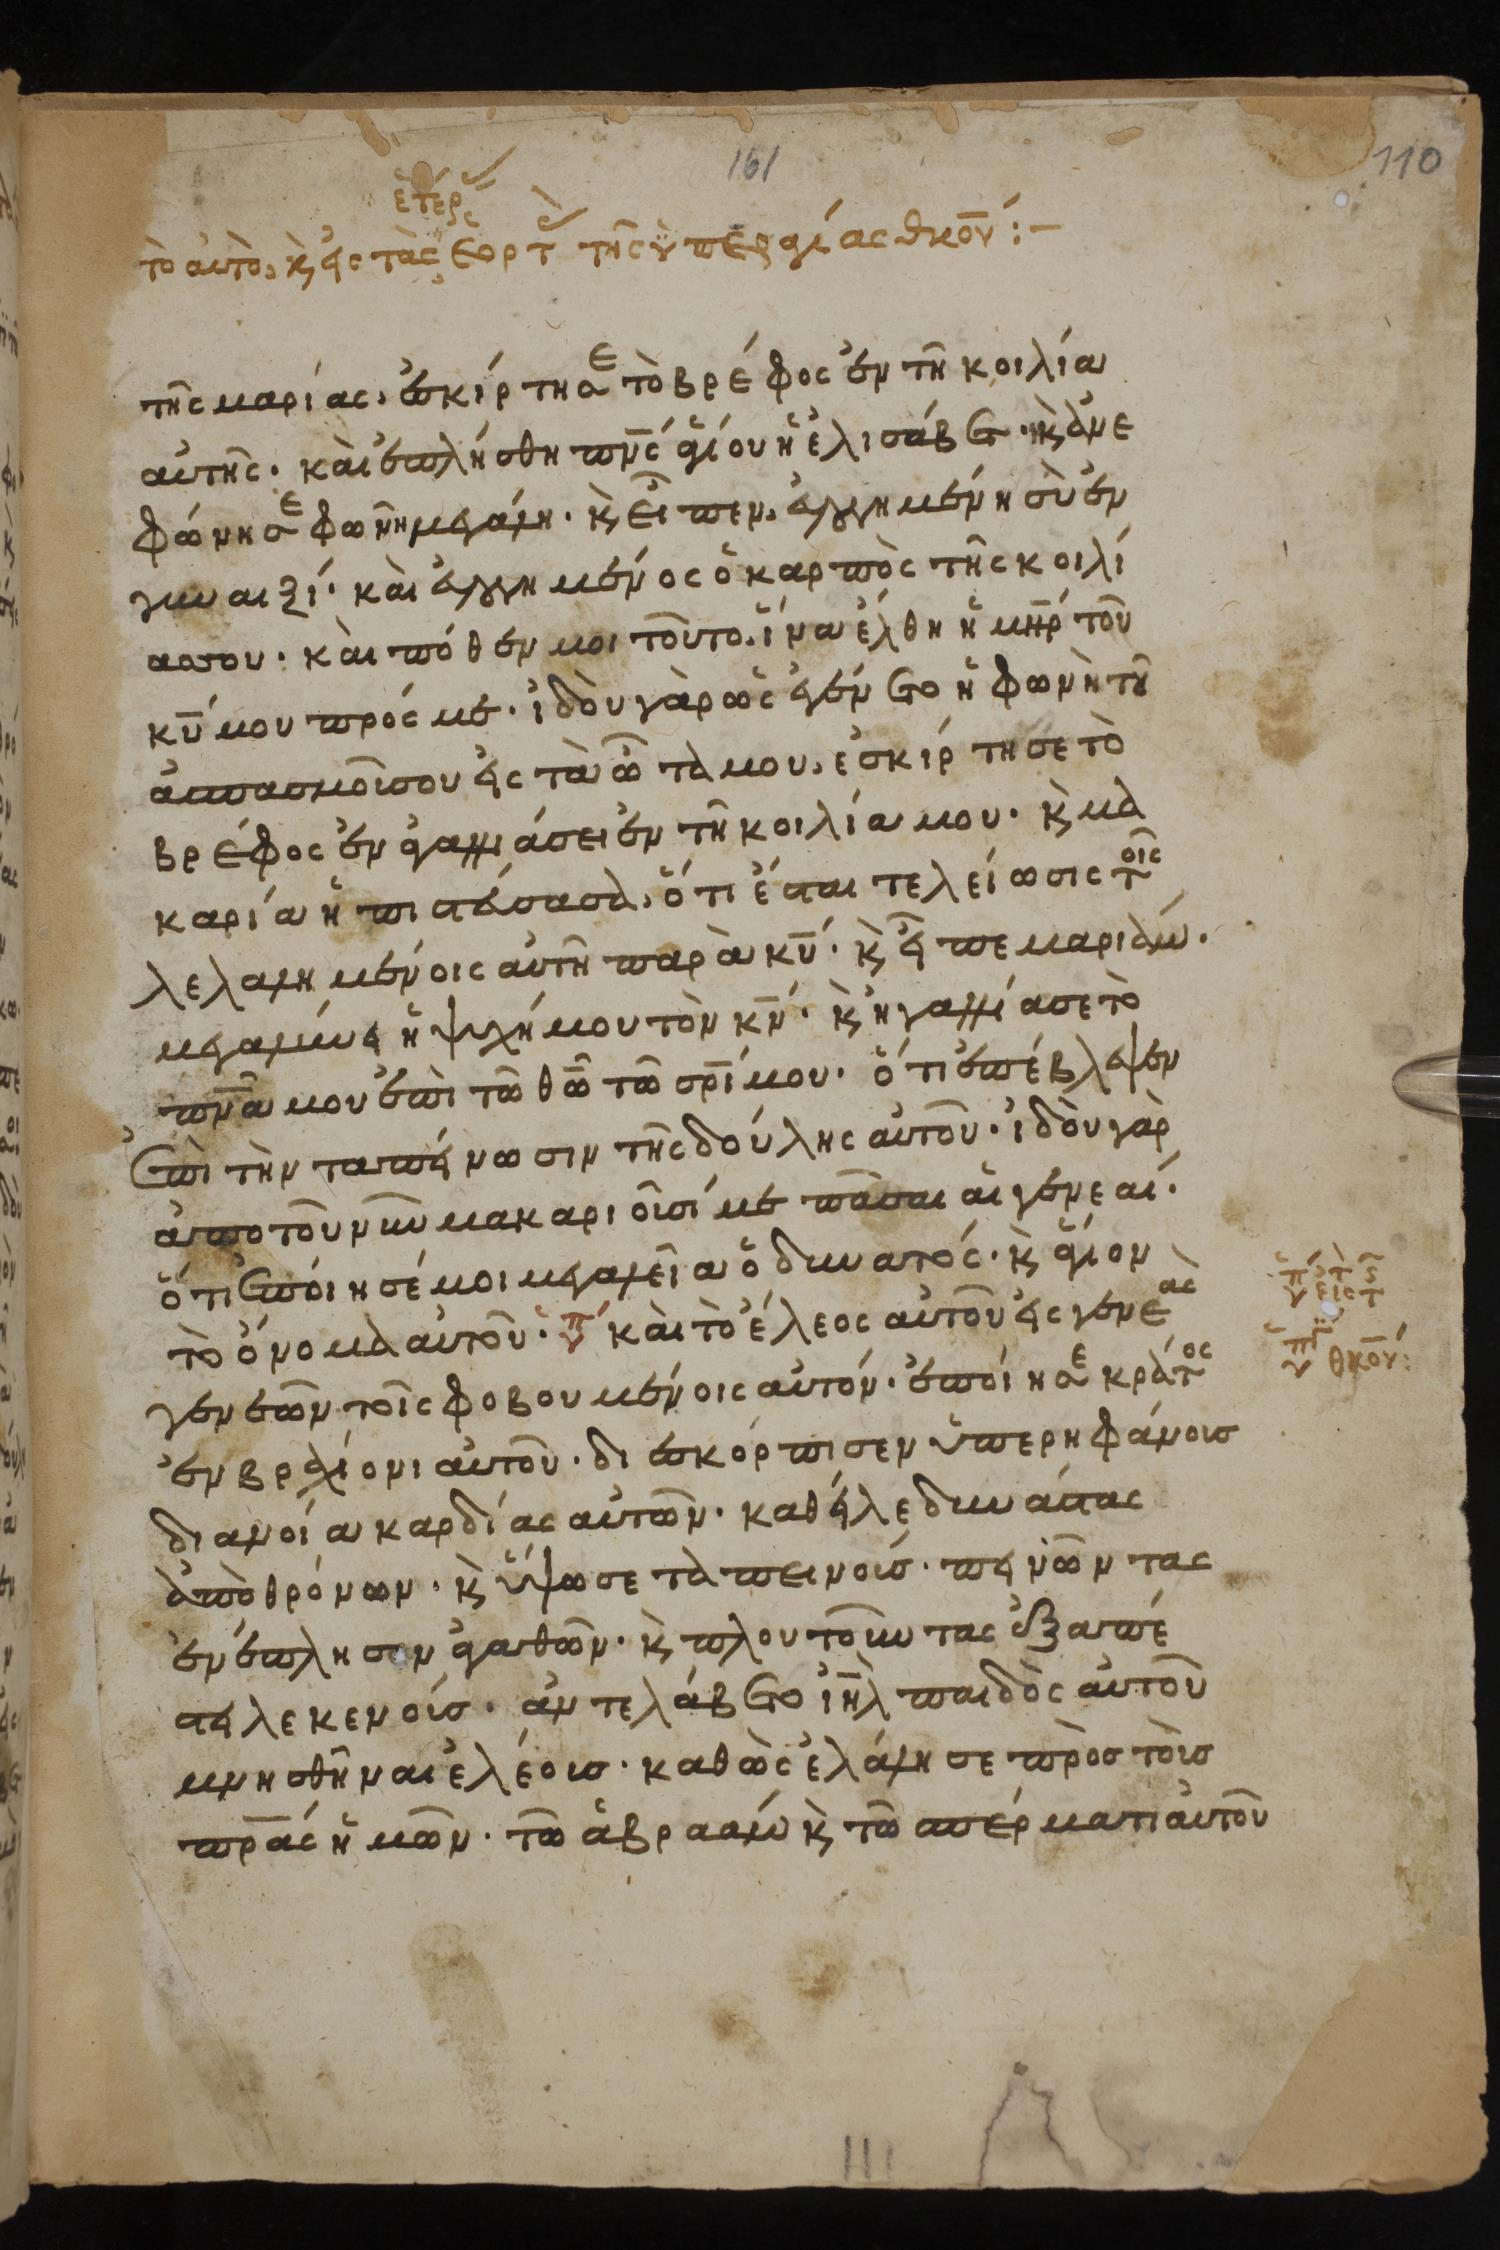 161
110
ἑτέρ
τὸ αὐτὸ, κ εἰς τὰς ἑορτ τῆς ὑπεραγίας θκου :—
τῆς μαρίας. ἐσκίρτησε τὸ βρέφος ἐν τῆ κοιλία
αὐτῆς. καὶ ἐπλήσθη πνς ἁγίου ἡ ἐλισάβετ. κ ἀνε
φώνησε φωνῆ μεγάλη. κ εἶπεν, εὐλογημένη σὺ ἐν
γυναιξί. καὶ εὐλογημένος ὁ καρπὸς τῆς κοιλί
ας σου. καὶ πόθεν μοι τοῦτο, ἵνα ἔλθη ἡ μηρ τοῦ
κυ μου πρός με. ἰδοὺ γὰρ ὡς ἐγένετο ἡ φωνὴ τοῦ
ἀσπασμοῦ σου εἰς τὰ ὦτα μου, ἐσκίρτησε τὸ
βρέφος ἐν ἀγαλλιάσει ἐν τῆ κοιλία μου. κ μα
καρία ἡ πιστεύσασα, ὅτι ἔσται τελείωσις τοῖς
λελαλημένοις αὐτῆ παρὰ κυ. κ εἶπε μαριάμ.
μεγαλύνει ἡ ψυχή μου τὸν κν. κ ἠγαλλίασε τὸ
πνα μου ἐπὶ τῶ θω τῶ σρι μου. ὅτι ἐπέβλεψεν
ἐπὶ τὴν ταπείνωσιν τῆς δούλης αὐτοῦ. ἰδοὺ γὰρ
ἀπο τοῦ νῦν μακαριοῦσί με πᾶσαι αἱ γενεαί.
ὅτι ἐποίησέ μοι μεγαλεῖα ὁ δυνατός. κ ἅγιον
τὸ ὄνομα αὐτοῦ. ὑπ καὶ τὸ ἔλεος αὐτοῦ εἰς γενεὰς
γενεῶν τοῖς φοβουμένοις αὐτόν. ἐποίησε κράτος
ἐν βραχίονι αὐτοῦ. διεσκόρπισεν ὑπερηφάνους
διανοία καρδίας αὐτῶν. καθεῖλε δυνάστας
ἀπὸ θρόνων. κ ὕψωσε ταπεινούς. πεινῶντας
ἐνέπλησεν ἀγαθῶν. κ πλουτοῦντας ἐξαπέ
στειλε κενούς. ἀντελάβετο ιηλ παιδὸς αὐτοῦ
μνησθῆναι ἐλέους. καθὼς ἐλάλησε πρὸς τοὺς
πρας ἡμῶν. τῶ ἀβραὰμ κ τῶ σπέρματι αὐτοῦ